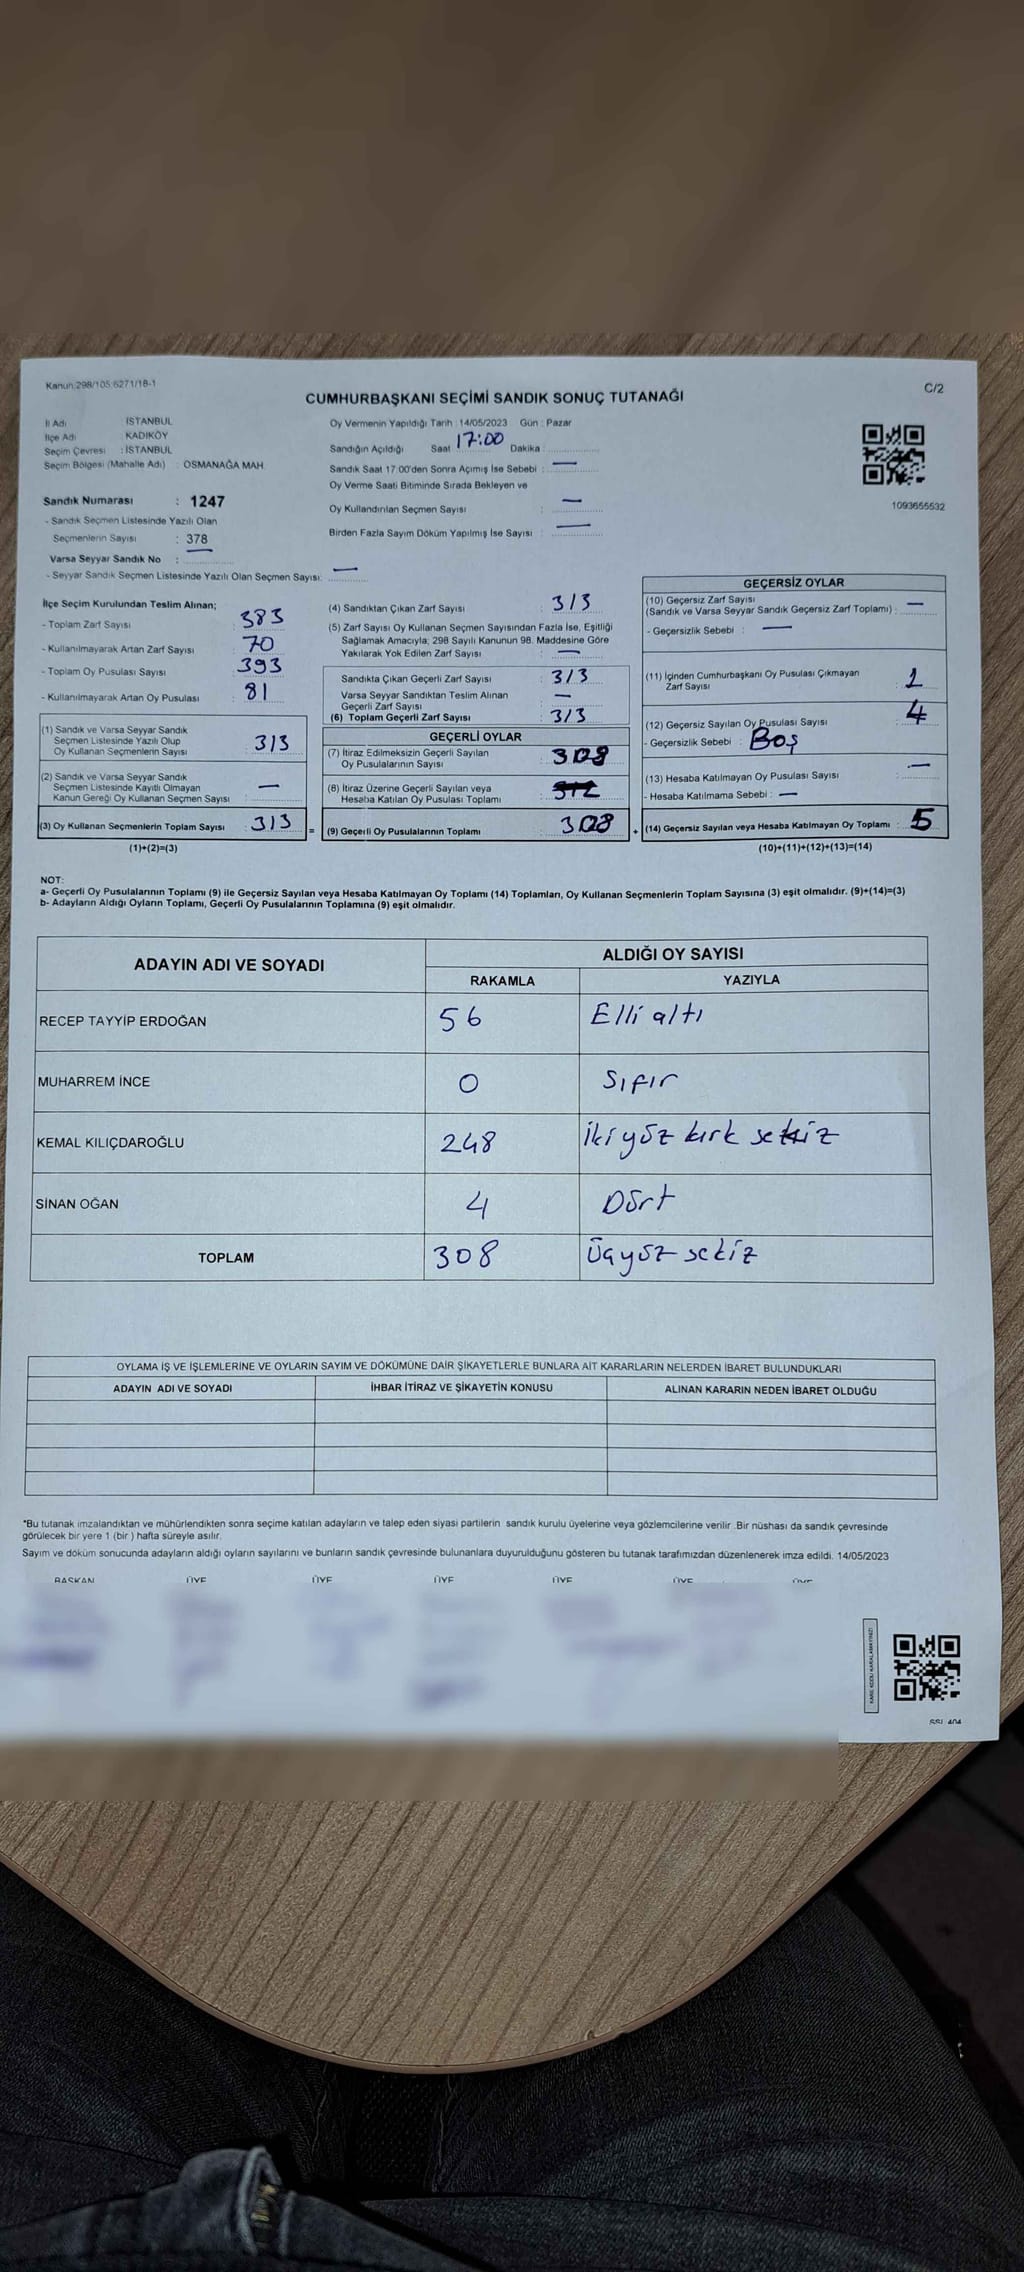 Kanun:298/105 6271/18-1
C/2
CUMHURBAŞKANI SEÇİMİ SANDIK SONUÇ TUTANAĞI
İl Adı : İSTANBUL
İlçe Adı : KADIKÖY
Seçim Çevresi : İSTANBUL
Seçim Bölgesi (Mahalle Adı) : OSMANAĞA MAH.
Sandık Numarası : 1247
- Sandık Seçmen Listesinde Yazılı Olan
Seçmenlerin Sayısı : 378
Varsa Seyyar Sandık No : —
- Seyyar Sandık Seçmen Listesinde Yazılı Olan Seçmen Sayısı: —
Oy Vermenin Yapıldığı Tarih : 14/05/2023 Gün : Pazar
Sandığın Açıldığı Saat 17:00 Dakika :
Sandık Saat 17:00'den Sonra Açımış İse Sebebi : —
Oy Verme Saati Bitiminde Sırada Bekleyen ve
Oy Kullandırılan Seçmen Sayısı : —
Birden Fazla Sayım Döküm Yapılmış İse Sayısı : —
1093655532
İlçe Seçim Kurulundan Teslim Alınan;
- Toplam Zarf Sayısı : 383
- Kullanılmayarak Artan Zarf Sayısı : 70
- Toplam Oy Pusulası Sayısı : 393
- Kullanılmayarak Artan Oy Pusulası : 81
(1) Sandık ve Varsa Seyyar Sandık
Seçmen Listesinde Yazılı Olup
Oy Kullanan Seçmenlerin Sayısı : 313
(2) Sandık ve Varsa Seyyar Sandık
Seçmen Listesinde Kayıtlı Olmayan
Kanun Gereği Oy Kullanan Seçmen Sayısı : —
(3) Oy Kullanan Seçmenlerin Toplam Sayısı : 313
(1)+(2)=(3)
(4) Sandıktan Çıkan Zarf Sayısı : 313
(5) Zarf Sayısı Oy Kullanan Seçmen Sayısından Fazla İse, Eşitliği
Sağlamak Amacıyla; 298 Sayılı Kanunun 98. Maddesine Göre
Yakılarak Yok Edilen Zarf Sayısı : —
Sandıkta Çıkan Geçerli Zarf Sayısı : 313
Varsa Seyyar Sandıktan Teslim Alınan
Geçerli Zarf Sayısı : —
(6) Toplam Geçerli Zarf Sayısı : 313
GEÇERLİ OYLAR
(7) İtiraz Edilmeksizin Geçerli Sayılan
Oy Pusulalarının Sayısı : 308
(8) İtiraz Üzerine Geçerli Sayılan veya
Hesaba Katılan Oy Pusulası Toplamı :
= (9) Geçerli Oy Pusulalarının Toplamı : 308
GEÇERSİZ OYLAR
(10) Geçersiz Zarf Sayısı
(Sandık ve Varsa Seyyar Sandık Geçersiz Zarf Toplamı) : —
- Geçersizlik Sebebi : —
(11) İçinden Cumhurbaşkanı Oy Pusulası Çıkmayan
Zarf Sayısı : 1
(12) Geçersiz Sayılan Oy Pusulası Sayısı : 4
- Geçersizlik Sebebi : Boş
(13) Hesaba Katılmayan Oy Pusulası Sayısı : —
- Hesaba Katılmama Sebebi : —
+ (14) Geçersiz Sayılan veya Hesaba Katılmayan Oy Toplamı : 5
(10)+(11)+(12)+(13)=(14)
NOT:
a- Geçerli Oy Pusulalarının Toplamı (9) ile Geçersiz Sayılan veya Hesaba Katılmayan Oy Toplamı (14) Toplamları, Oy Kullanan Seçmenlerin Toplam Sayısına (3) eşit olmalıdır. (9)+(14)=(3)
b- Adayların Aldığı Oyların Toplamı, Geçerli Oy Pusulalarının Toplamına (9) eşit olmalıdır.
ADAYIN ADI VE SOYADI ALDIĞI OY SAYISI
RAKAMLA YAZIYLA
RECEP TAYYİP ERDOĞAN 56 Elli altı
MUHARREM İNCE 0 Sıfır
KEMAL KILIÇDAROĞLU 248 İki yüz kırk sekiz
SİNAN OĞAN 4 Dört
TOPLAM 308 Üçyüz sekiz
OYLAMA İŞ VE İŞLEMLERİNE VE OYLARIN SAYIM VE DÖKÜMÜNE DAİR ŞİKAYETLERLE BUNLARA AİT KARARLARIN NELERDEN İBARET BULUNDUKLARI
ADAYIN ADI VE SOYADI İHBAR İTİRAZ VE ŞİKAYETİN KONUSU ALINAN KARARIN NEDEN İBARET OLDUĞU
*Bu tutanak imzalandıktan ve mühürlendikten sonra seçime katılan adayların ve talep eden siyasi partilerin sandık kurulu üyelerine veya gözlemcilerine verilir. Bir nüshası da sandık çevresinde
görülecek bir yere 1 (bir) hafta süreyle asılır.
Sayım ve döküm sonucunda adayların aldığı oyların sayılarını ve bunların sandık çevresinde bulunanlara duyurulduğunu gösteren bu tutanak tarafımızdan düzenlenerek imza edildi. 14/05/2023
BAŞKAN ÜYE ÜYE ÜYE ÜYE ÜYE ÜYE
KARE KODU KARALAMAYINIZ!